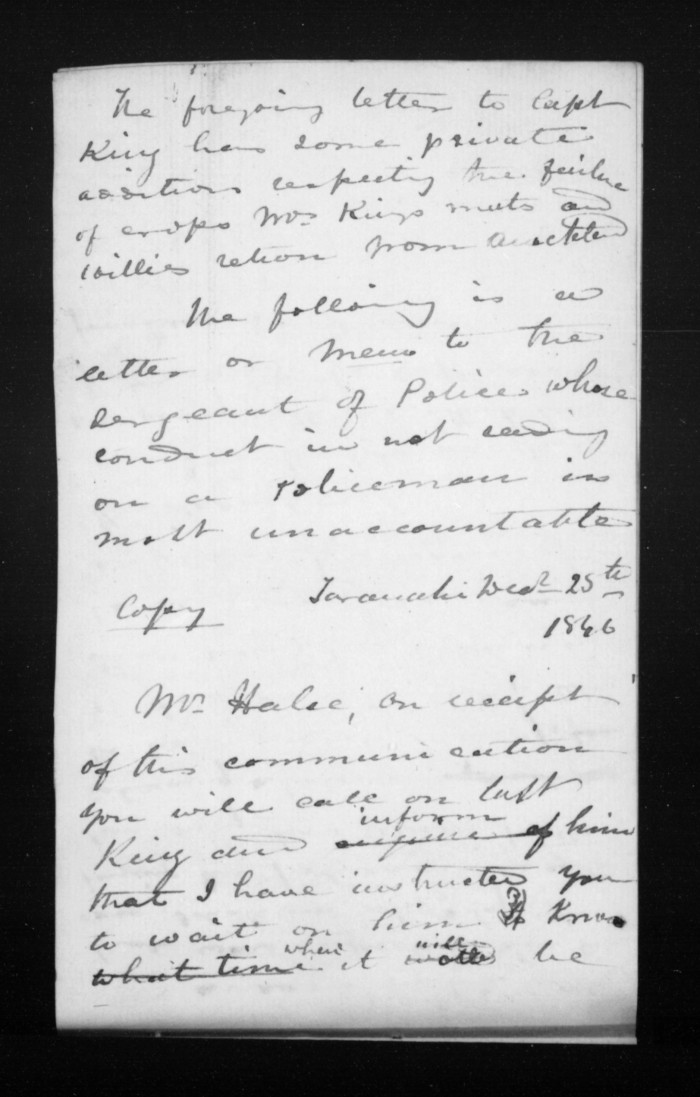 The foregoing letter to Capt
King has some private
additions respecting the failure
of crops Mrs Kings mats and
Willies return from Auckland
The following is a
letter or Memo to the
Sergeant of Police whose
conduct in not sending
on a Policeman is
most unaccountable
Copy Taranaki Decr 25th
1846
Mr Halse, On receipt
of this communication
you will call on Capt
King and inform enquire of him
that I have instructed you
to wait on him to know
what time when it will be